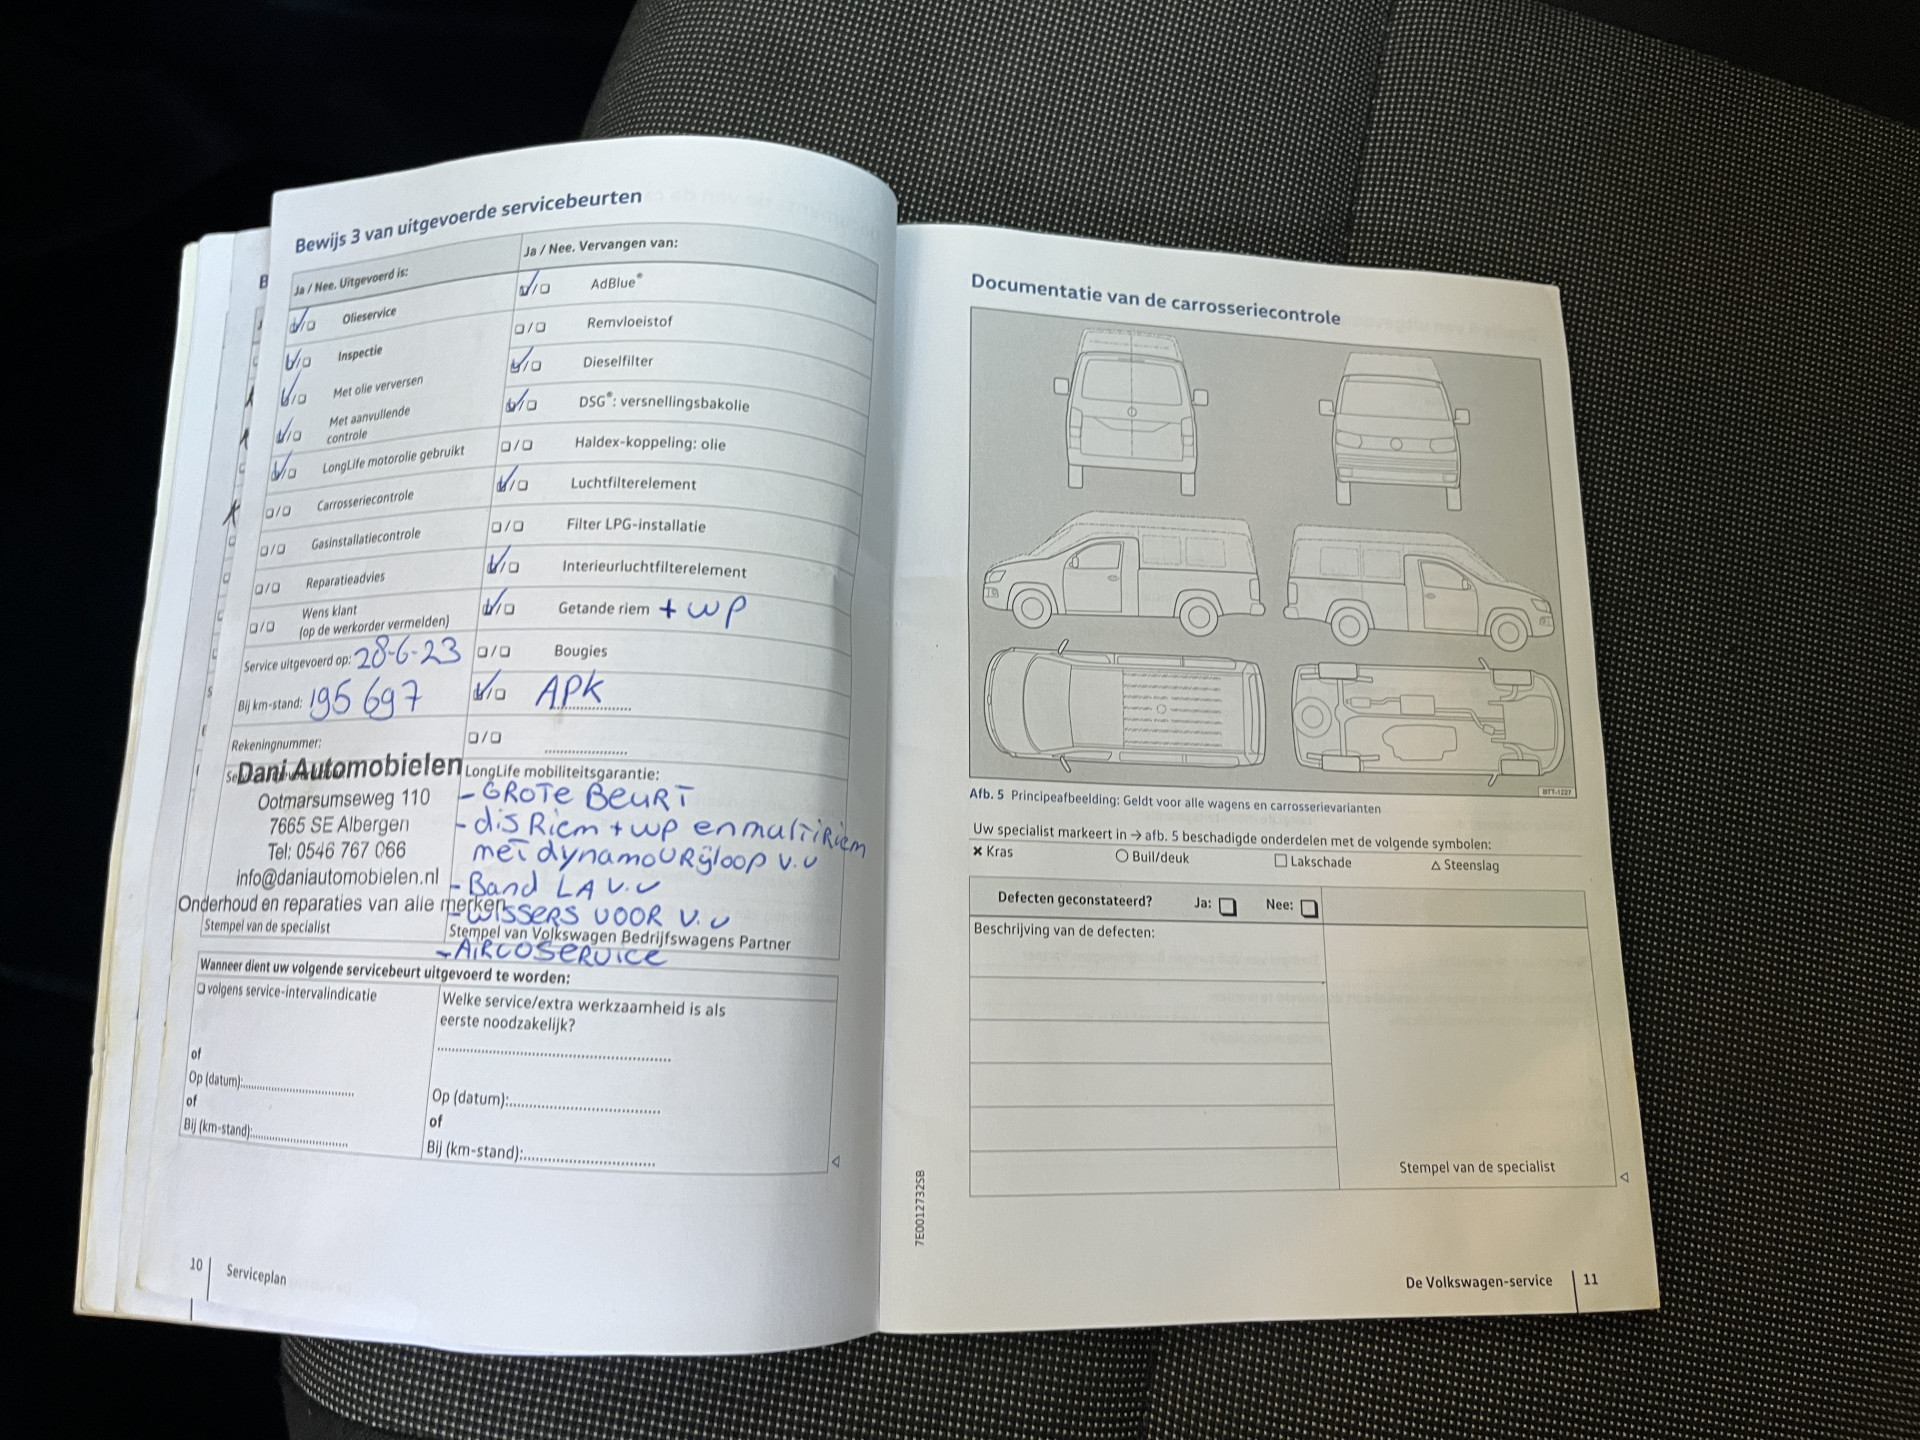 Bewijs 3 van uitgevoerde servicebeurten
Ja / Nee. Uitgevoerd is:
Olieservice
Inspectie
Met olie verversen
Met aanvullende
controle
LongLife motorolie gebruikt
Carrosseriecontrole
Gasinstallatiecontrole
Reparatieadvies
Wens klant
(op de werkorder vermelden)
Service uitgevoerd op: 28-6-23
Bij km-stand: 195 697
Rekeningnummer:
Dani Automobielen
Ootmarsumseweg 110
7665 SE Albergen
Tel: 0546 767 066
info@daniautomobielen.nl
Onderhoud en reparaties van alle merken
Stempel van de specialist
Ja / Nee. Vervangen van:
AdBlue®
Remvloeistof
Dieselfilter
DSG®: versnellingsbakolie
Haldex-koppeling: olie
Luchtfilterelement
Filter LPG-installatie
Interieurluchtfilterelement
Getande riem + WP
Bougies
APK
LongLife mobiliteitsgarantie:
- GROTE BEURT
- disRiem + wp en multiRiem
met dynamo URijloop v.v
- Band LA v.v
- WISSERS VOOR V.V
Stempel van Volkswagen Bedrijfswagens Partner
- AIRCOSERVICE
Wanneer dient uw volgende servicebeurt uitgevoerd te worden:
❏ volgens service-intervalindicatie
of
Op (datum):
of
Bij (km-stand):
Welke service/extra werkzaamheid is als
eerste noodzakelijk?
Op (datum):
of
Bij (km-stand):
10 Serviceplan
Documentatie van de carrosseriecontrole
BTT-1227
Afb. 5 Principeafbeelding: Geldt voor alle wagens en carrosserievarianten
Uw specialist markeert in → afb. 5 beschadigde onderdelen met de volgende symbolen:
× Kras ○ Buil/deuk □ Lakschade △ Steenslag
Defecten geconstateerd? Ja: ❏ Nee: ❏
Beschrijving van de defecten:
Stempel van de specialist
7E0012732SB
De Volkswagen-service 11